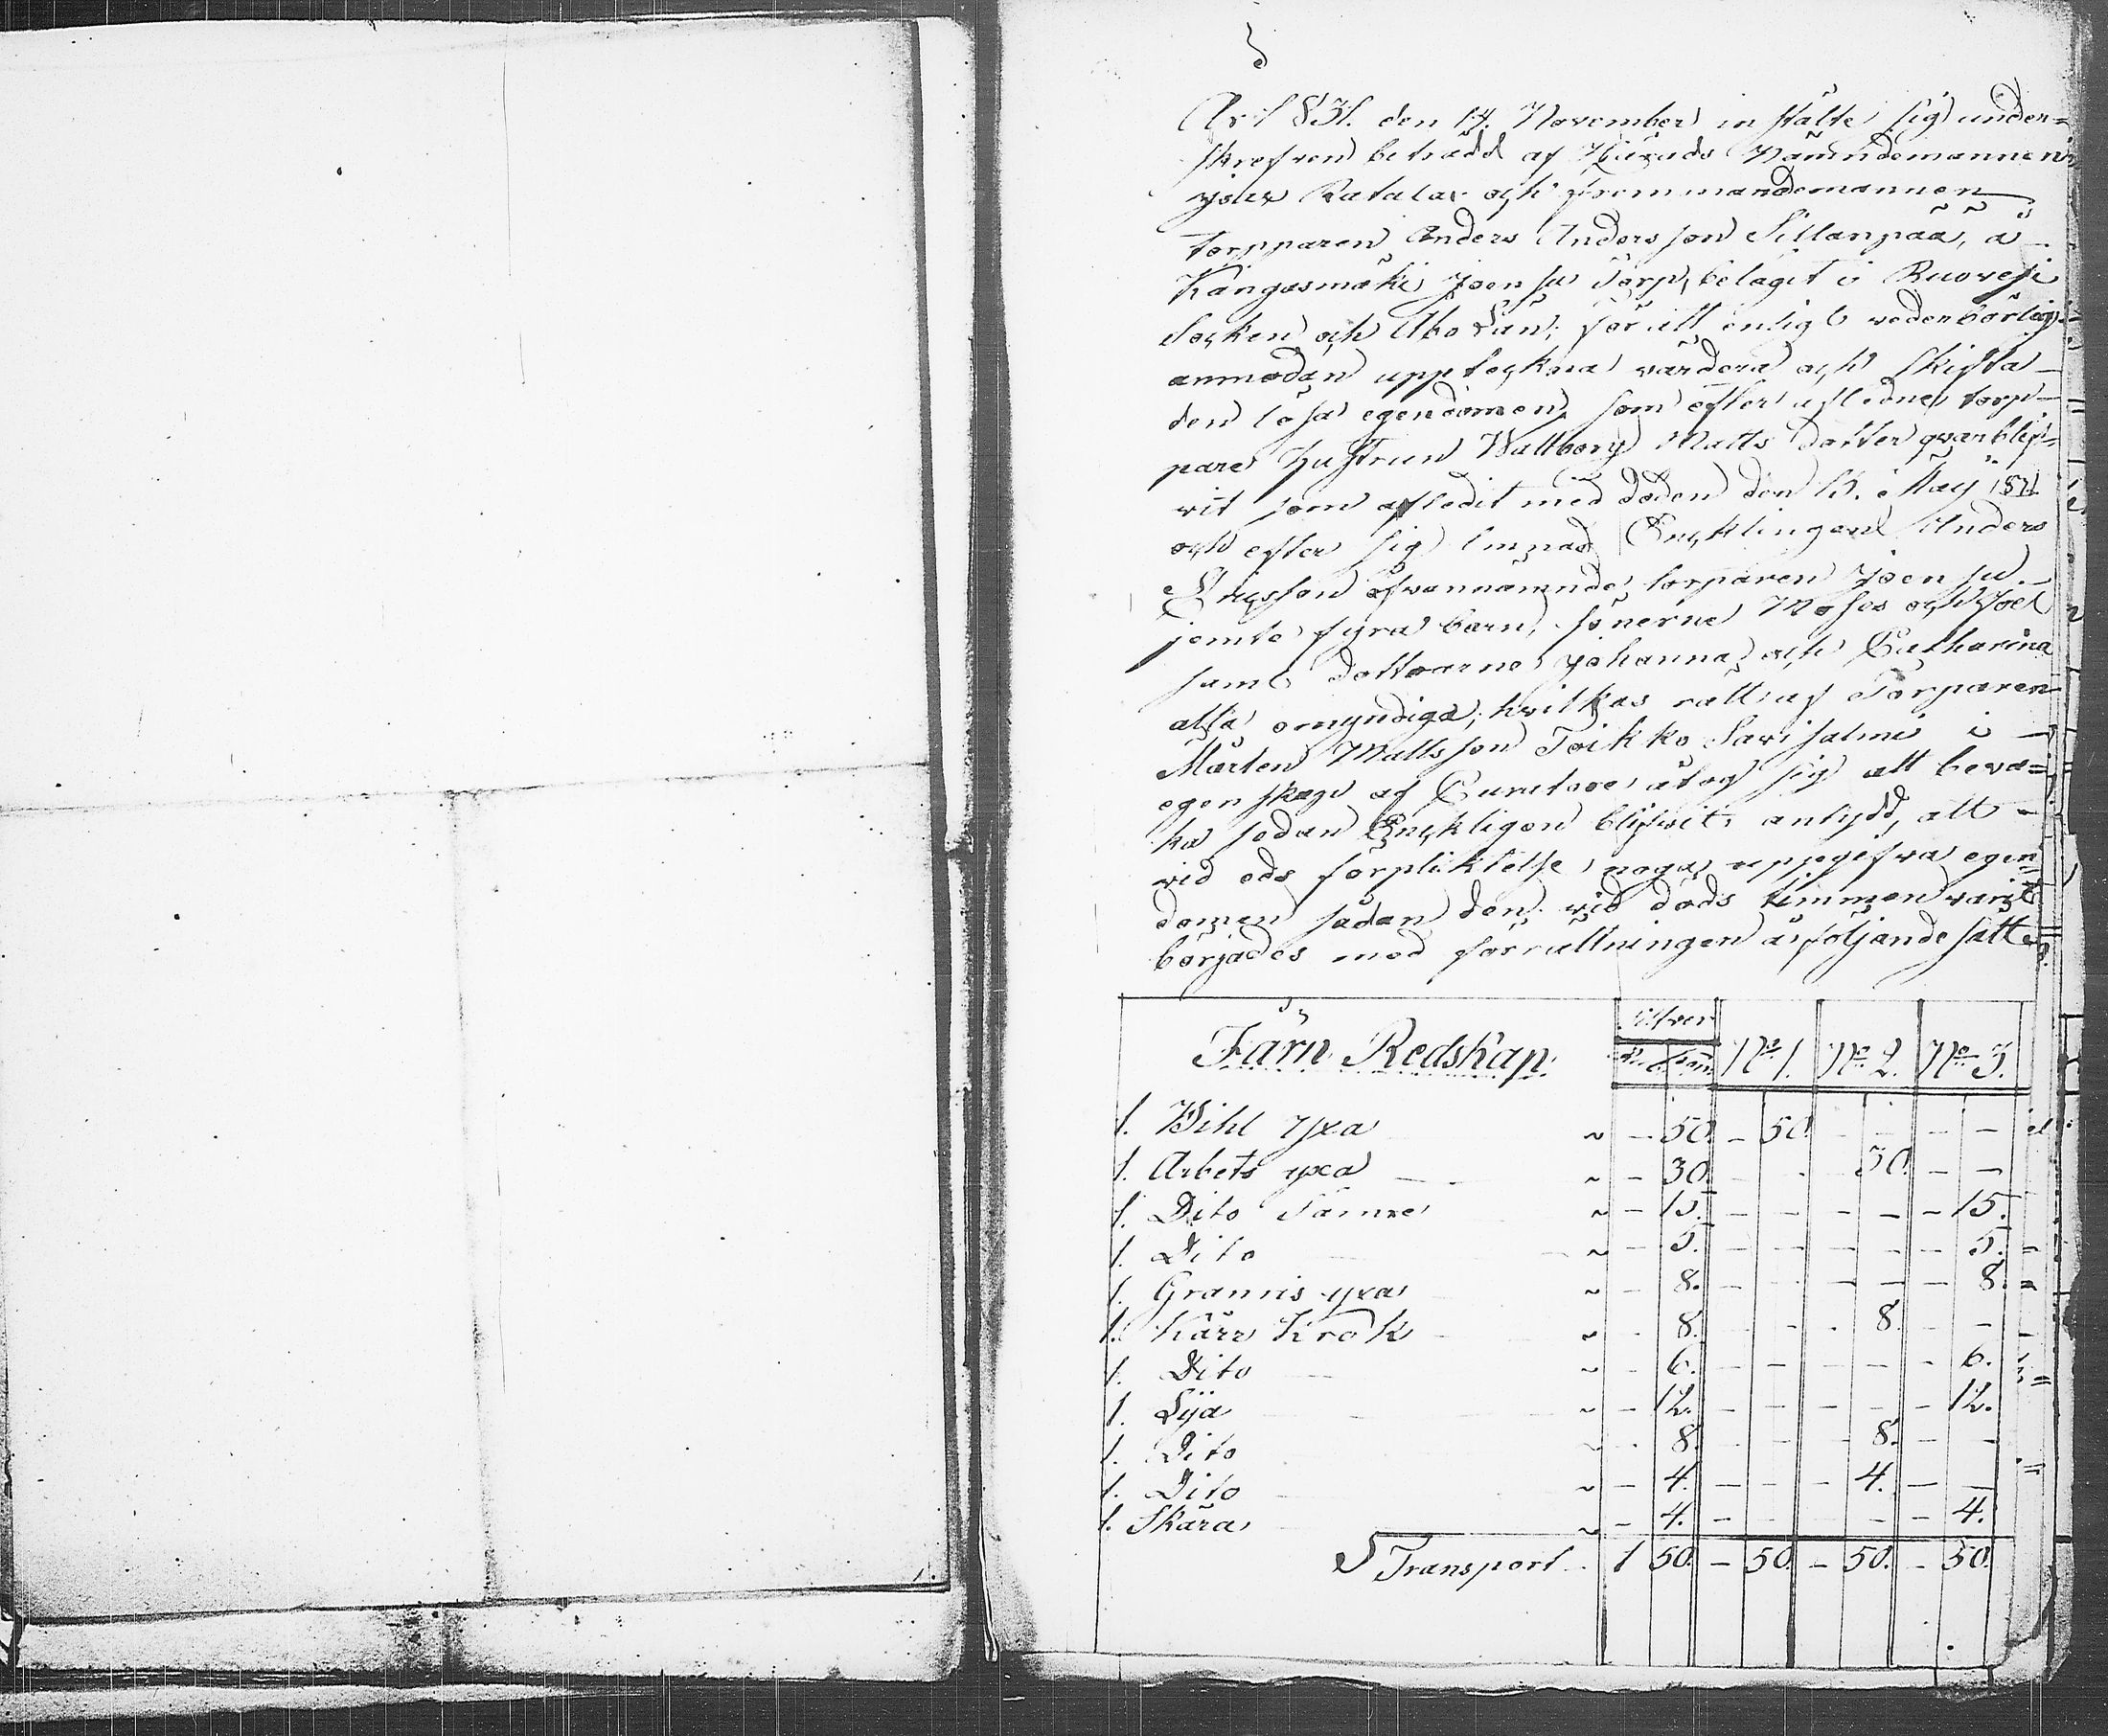 År 1831. den 14. November in stälte sig under=
skrefven beträdd af Härads Nämndemannen
och frommandemannen
torpparen Anders Andersson Sillanpää, å
Kangasmäki Joensu Torp, belägit i Ruovesi
Socken och Åbo Län; för att enligt vederbörlig
anmodan uppteckna värdera och skifta
den lösa egendomen, som efter aflednes torp=
pare hustrun Wallborg Matts dotter qvarblif=
vit som afledit med döden den 15. Maij 1831
och efter sig lämnad Encklingen Anders
Ericsson ofvannämnde torparen Joensu
jemte fyra barn, sönerne Moses och Joel
samt dottrarne Johanna och Catharina
alla omyndiga, hvilkas rätt af Torparen
Mårten Mattsson Toikko Savisalmi i
egenskap af Curatore åtog sig att beva=
ka sedan Enckligen blifvit antydd, att
vid eds förpliktelse noga uppgifva egen
domen sådan den vid döds timmen varit
börjades med förrättningen å följande sätt
Järn Redskap. Silfver Ru. Kop. No 1. No 2. No 3.
1. Bihl Yxa ~ - 50. - 50. - - - -
1. Arbets yxa ~ - 30. - - 30. - -
1. Dito Sämre ~ - 15. - - - - - 15.
1. Dito ~ - 5. - - - - - 5.
1. Grannis yxa ~ - 8. - - - - - 8.
1. Kärr Krok ~ - 8. - - - 8. - -
1. Dito ~ - 6. - - - - - 6.
1. Lija ~ - 12. - - - - - 12.
1. Dito ~ - 8. - - - 8. - -
1. Dito ~ - 4. - - - 4. - -
1. Skära ~ - 4. - - - - - 4.
Transport 1 50. - 50. - 50. - 50.